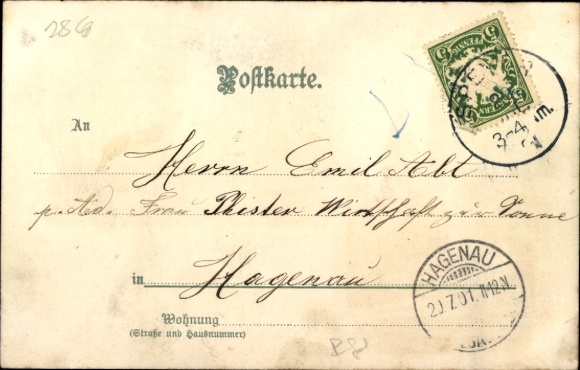 286
Postkarte.
5 PFENNIG 5
SPEYER
3-4 Nm.
An
Herrn Emil Abt
p. Ad. Frau Pfister Wirthschaft zur Sonne
in Hagenau
HAGENAU
20.7.01. 11-12.N
Wohnung
(Straße und Hausnummer)